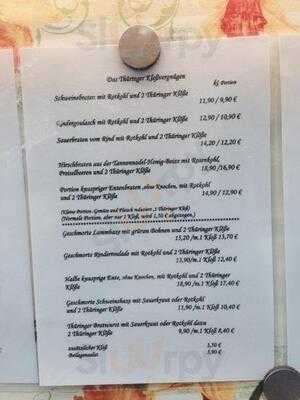 Das Thüringer Kloßvergnügen
kl. Portion
Schweinebraten mit Rotkohl und 2 Thüringer Klöße
11,90 / 9,90 €
Rindergoulasch mit Rotkohl und 2 Thüringer Klöße
12,90 / 10,90 €
Sauerbraten vom Rind mit Rotkohl und 2 Thüringer Klöße
14,20 / 12,20 €
Hirschbraten aus der Tannennadel-Honig-Beize mit Rosenkohl,
Preiselbeeren und 2 Thüringer Klöße
18,90 /16,90 €
Portion knuspriger Entenbraten, ohne Knochen, mit Rotkohl
und 2 Thüringer Klöße
14,90 / 12,90 €
(Kleine Portion: Gemüse und Fleisch reduziert, 2 Thüringer Kloß)
(Normale Portion, aber nur 1 Kloß, wird 1,50 € abgezogen.)
Geschmorte Lammhaxe mit grünen Bohnen und 2 Thüringer Klöße
15,20 /m.1 Kloß 13,70 €
Geschmorte Rinderroulade mit Rotkohl und 2 Thüringer Klöße
13,90/m.1 Kloß 12,40 €
Halbe knusprige Ente, ohne Knochen, mit Rotkohl und 2 Thüringer
Klöße
18,90 /m.1 Kloß 17,40 €
Geschmorte Schweinshaxe mit Sauerkraut oder Rotkohl
und 2 Thüringer Klöße
11,90 /m.1 Kloß 10,40 €
Thüringer Bratwurst mit Sauerkraut oder Rotkohl dazu
2 Thüringer Klöße
9,90 /m.1 Kloß 8,40 €
zusätzlicher Kloß
1,50 €
Beilagensalat
3,90 €